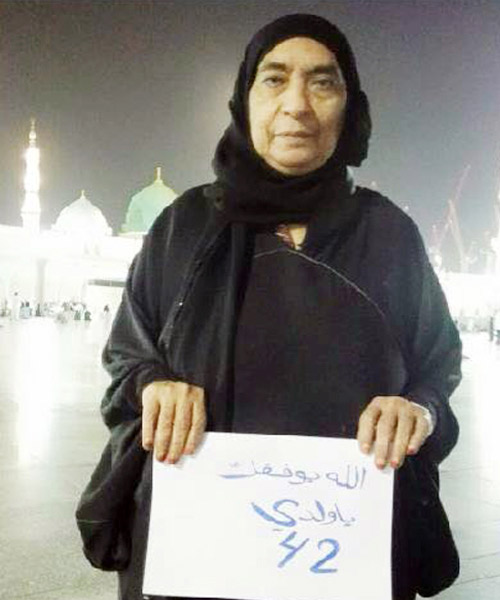 الله يوفقك
ياولدي
42